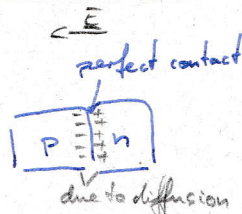 E
perfect contact
p
n
due to diffusion